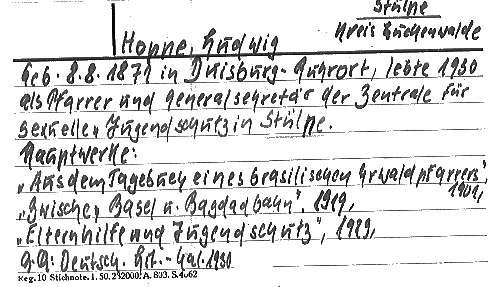 Stülpe
Kreis Luckenwalde
Hoppe, Ludwig
Geb. 8.8.1871 in Duisburg-Ruhrort, lebte 1930
als Pfarrer und Generalsekretär der Zentrale für
sexuellen Jugendschutz in Stülpe.
Hauptwerke:
„Aus dem Tagebuch eines brasilischen Urwaldpfarrers",
1901,
„Zwischen Basel u. Bagdadbahn", 1919,
„Elternhilfe und Jugendschutz",
Deutsch. Lit.-Kal. 1930
Reg. 10 Stichnote. 1. 50. 232000. A. 803. S. 4662